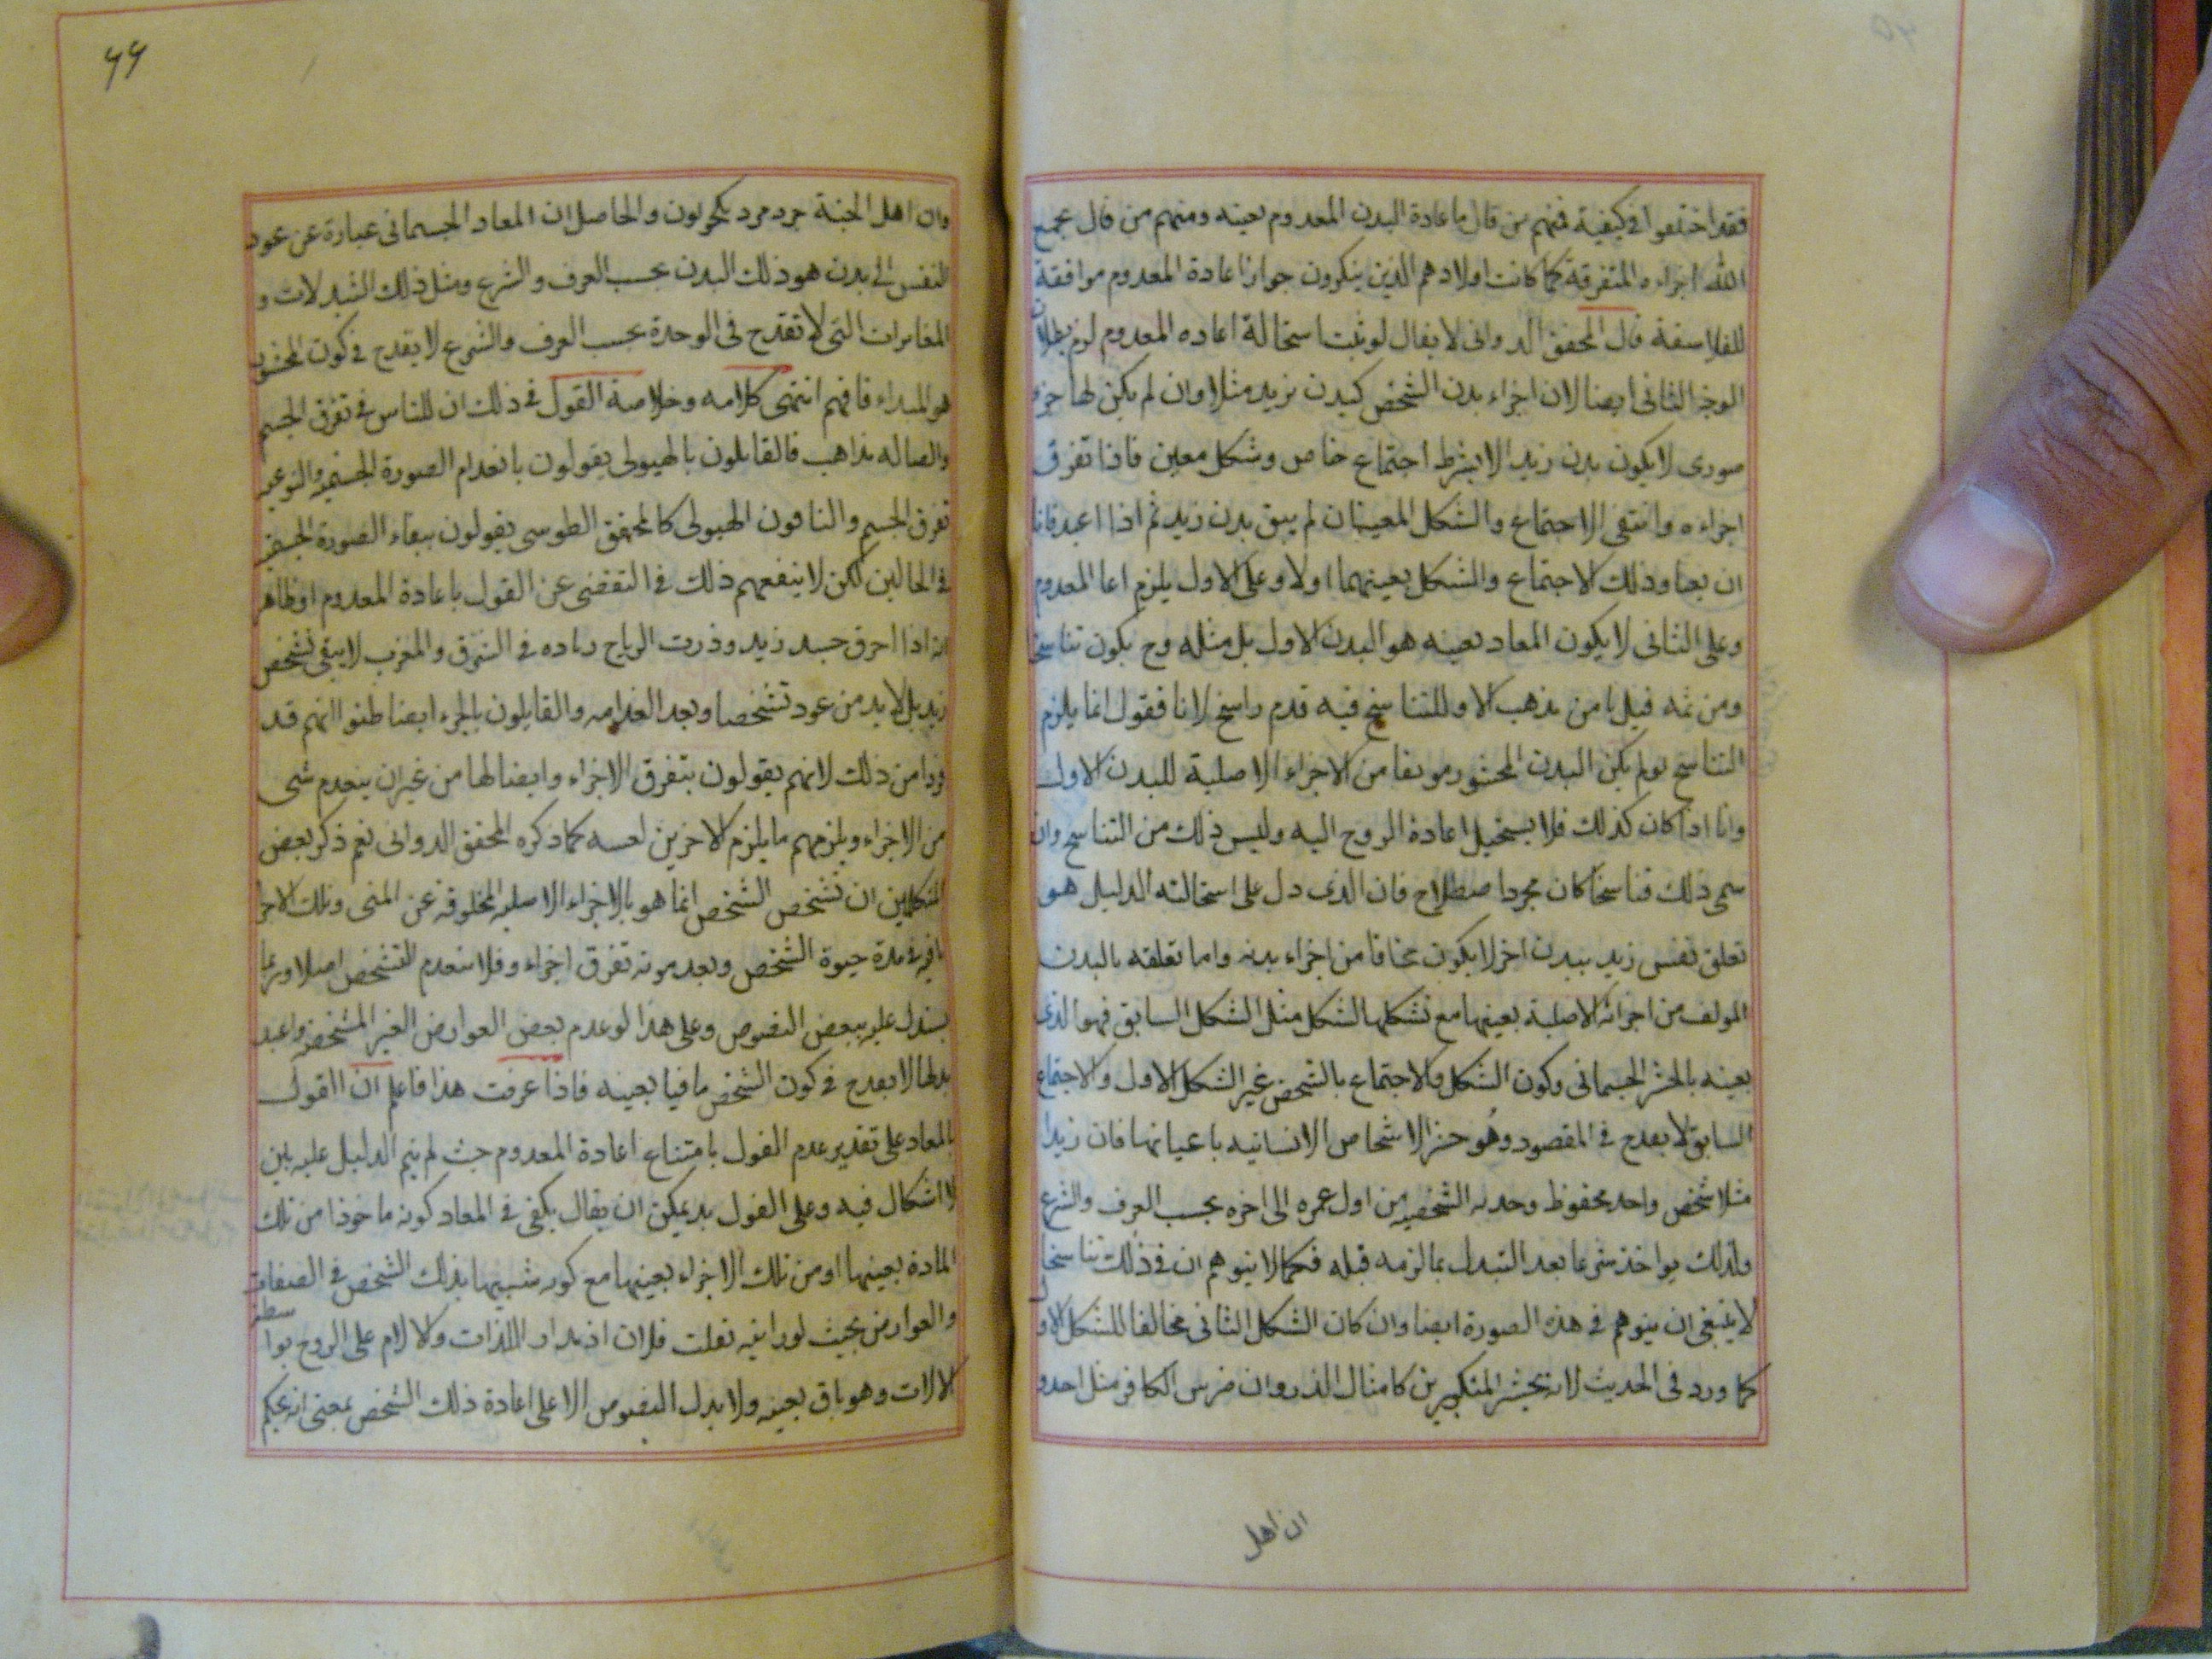 فقد اختلفوا فى كيفية فمنهم من قال باعادة البدن المعدوم بعينه ومنهم من قال بجمع
الله اجزاءه المتفرقة كما كانت اولا وهم الذين ينكرون جواز اعادة المعدوم موافقة
للفلاسفة قال المحقق الدوانى لا يقال لو ثبت استحالة اعاده المعدوم لزم بطلان
الوجه الثانى ايضا لان اجزاء بدن الشخص كبدن زيد مثلا وان لم يكن لها جزء
صورى لا يكون بدن زيد الا بشرط اجتماع خاص وشكل معين فاذا تفرق
اجزاءه وانتفى الاجتماع والشكل المعينان لم يبق بدن زيد ثم اذا اعيد فاما
ان يعاد ذلك الاجتماع والشكل بعينهما اولا وعلى الاول يلزم اعا المعدوم
وعلى الثانى لا يكون المعاد بعينه هو البدن الاول بل مثله وح يكون تناسخا
ومن ثمه قيل ما من مذهب الا وللتناسخ فيه قدم راسخ لانا نقول انما يلزم
التناسخ لو لم يكن البدن المحشور مولفا من الاجزاء الاصلية للبدن الاول
واما اذا كان كذلك فلا يستحيل اعادة الروح اليه وليس ذلك من التناسخ وان
سمى ذلك تناسخا كان مجرد اصطلاح فان الذى دل على استحالته الدليل هو
تعلق نفس زيد ببدن اخر لا يكون مخلوقا من اجزاء بدنه واما تعلقه بالبدن
المولف من اجزائه الاصلية بعينها مع تشكلها بشكل مثل الشكل السابق فهو الذى
بعينه بالحشر الجسمانى وكون الشكل والاجتماع بالشخص غير الشكل الاول والاجتماع
السابق لا يقدح فى المقصود وهو حشر الاشخاص الانسانيه باعيانها فان زيدا
مثلا شخص واحد محفوظ وحدته الشخصيه من اول عمره الى اخره بحسب العرف والشرع
ولذلك يواخذ شرعا بعد التبدل بما لزمه قبله فكما لا يتوهم ان فى ذلك تناسخا
لا ينبغى ان يتوهم فى هذه الصورة ايضا وان كان الشكل الثانى مخالفا للشكل الاول
كما ورد فى الحديث لانه يحشر المتكبرين كامثال الذر وان ضرس الكافر مثل احد و
ان اهل
۶۶
وان اهل الجنة جرد مرد مكحولون والحاصل ان المعاد الجسمانى عبارة عن عود
النفس الى بدن هو ذلك البدن بحسب العرف والشرع ومثل ذلك التبدلات و
المغايرات التى لا تقدح فى الوحدة بحسب العرف والشرع لا يقدح فى كون المحشور
هو المبداء فافهم انتهى كلامه وخلاصة القول فى ذلك ان للناس فى تفرق الجسم
واتصاله مذاهب فالقايلون بالهيولى يقولون بانعدام الصورة الجسميه والنوعيه
تفرق الجسم والنافون الهيولى كالمحقق الطوسى يقولون ببقاء الصورة الجسميه
فى الحالين لكن لا ينفعهم ذلك فى التفصى عن القول باعادة المعدوم اذ ظاهر
انه اذا احرق جسد زيد وذرت الرياح رماده فى الشرق والمغرب لا يبقى تشخص
زيد بل لا بد من عود تشخصا وبعد انعدامه والقايلون بالجزء ايضا ظنوا انهم قد
فردا من ذلك لانهم يقولون بتفرق الاجزاء واتصالها من غير ان ينعدم شى
من الاجزاء ويلزمهم ما يلزم الاخرين لعسه كما ذكره المحقق الدوانى نعم ذكر بعض
المتكلمين ان تشخص الشخص انما هو بالاجزاء الاصليه المخلوقه عن المنى وتلك الاجزا
باقيه فى مدة حيوة الشخص وبعد موته تفرق اجزاءه فلا ينعدم التشخص اصلا وربما
يستدل عليه ببعض النصوص وعلى هذا لو عدم بعض العوارض الغير المشخصه واعيد
بدلها لا يقدح فى كون الشخص باقيا بعينه فاذا عرفت هذا فاعلم ان القول
بالمعاد على تقدير عدم القول بامتناع اعادة المعدوم حيث لم يتم الدليل عليه بين
لا اشكال فيه وعلى القول به يمكن ان يقال يكفى فى المعاد كونه ماخوذا من تلك
المادة بعينها او من تلك الاجزاء بعينها مع كونه شبيها بذلك الشخص فى الصفات
والعوارض بحيث لو رايته لقلت فلان اذ مدار اللذات والالام على الروح بواسطه
الالات وهو باق بعينه ولا يدل النصوص الا على اعادة ذلك الشخص بمعنى انه يحكم